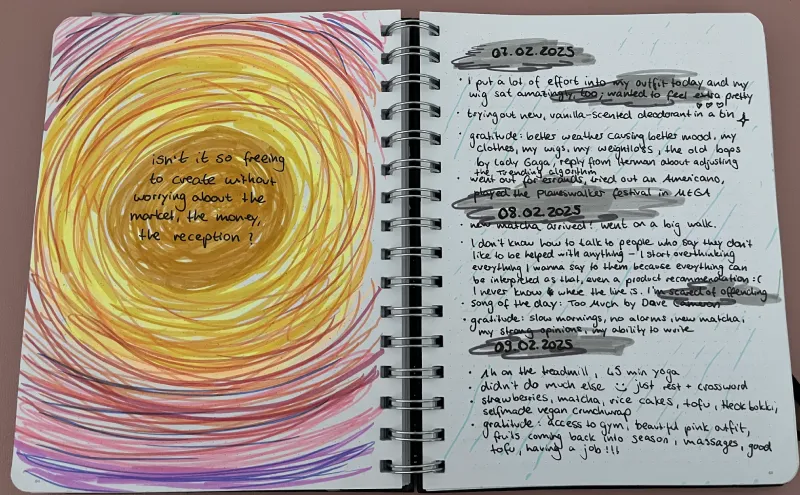 isn't it so freeing
to create without
worrying about the
market, the money,
the reception?
07.02.2025
• I put a lot of effort into my outfit today and my
wig sat amazingly, too; wanted to feel extra pretty
• trying out new, vanilla-scented deodorant in a tin
• gratitude: better weather causing better mood, my
clothes, my wigs, my weightloss, the old bops
by Lady Gaga, reply from Herman about adjusting
the Trending algorithm
• went out for errands, tried out an Americano,
played the Planeswalker festival in MtGA
08.02.2025
• new matcha arrived! went on a big walk.
• I don't know how to talk to people who say they don't
like to be helped with anything - I start overthinking
everything I wanna say to them because everything can
be interpreted as that, even a product recommendation :(
I never know where the line is. I'm scared of offending
• song of the day: Too Much by Dave
• gratitude: slow mornings, no alarms, new matcha,
my strong opinions, my ability to write
09.02.2025
• 1h on the treadmill, 45 min yoga
• didn't do much else :) just rest + crossword
• strawberries, matcha, rice cakes, tofu, tteokbokki,
selfmade vegan crunchwrap
• gratitude: access to gym, beautiful pink outfit,
fruits coming back into season, massages, good
tofu, having a job!!!